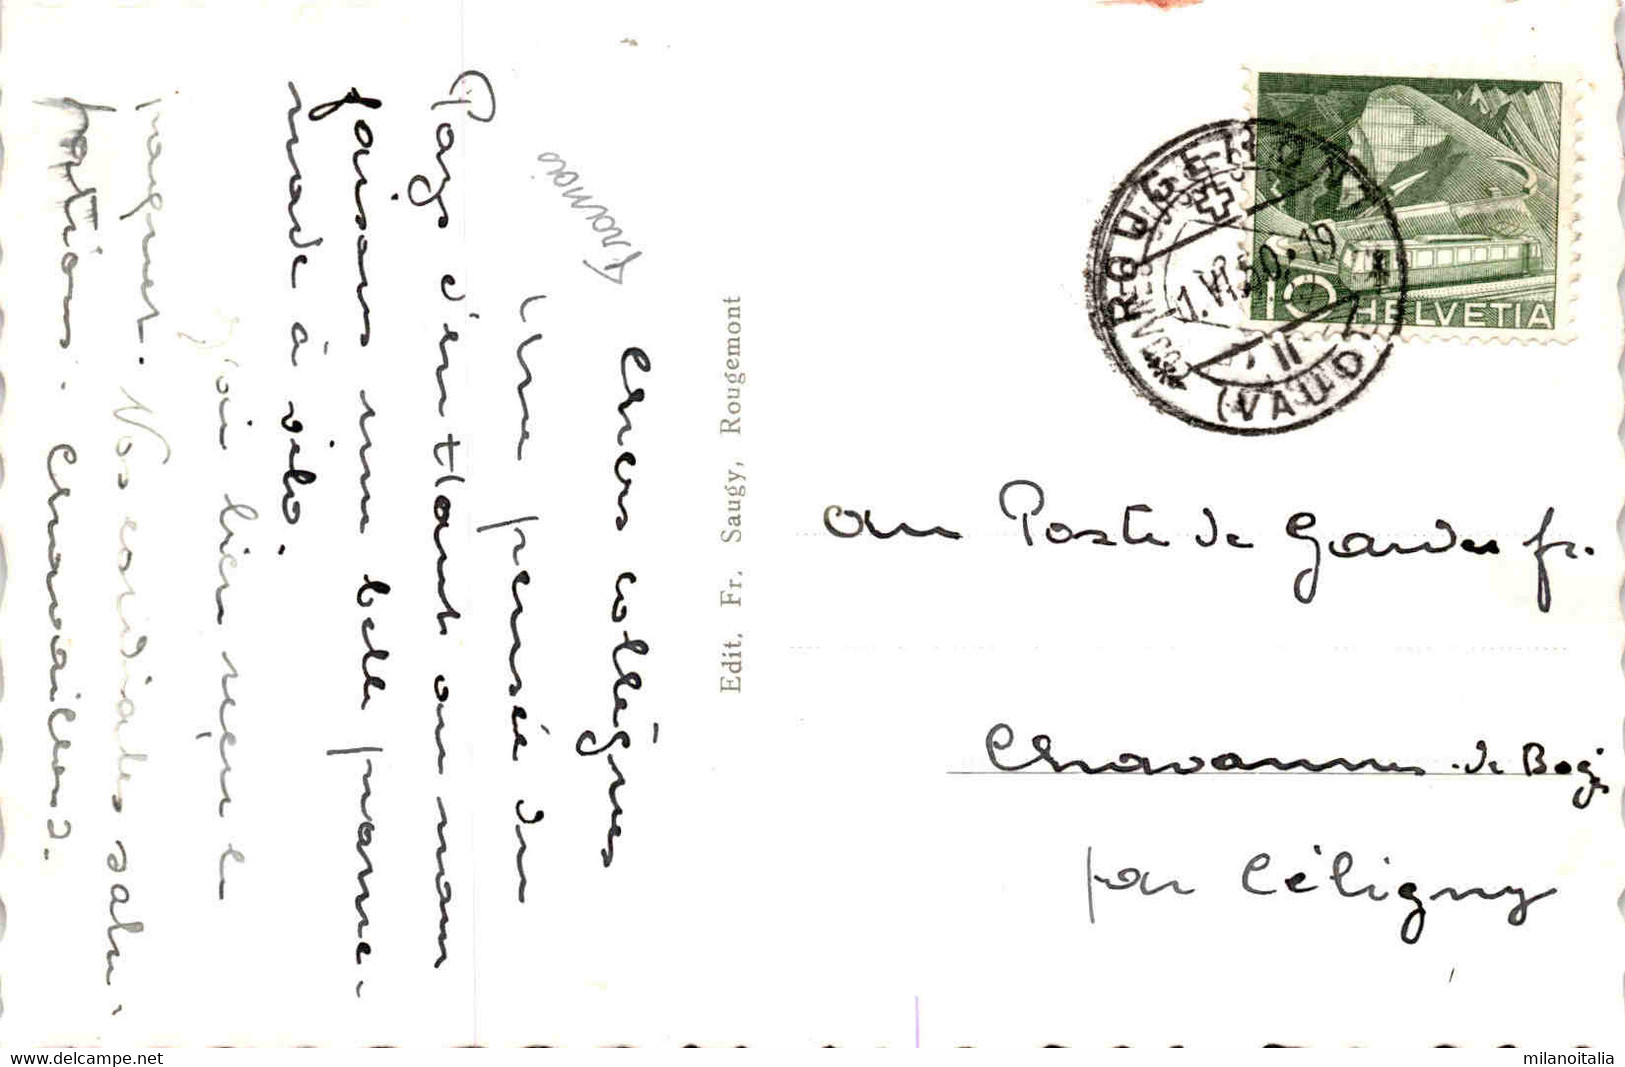 Chers collègues
Une pensée du
Pays d'enHaut où nous
faisons une belle prome-
nade à vélo.
J'ai bien reçu le
paquet. Vos cordiales salu-
tations. Chavaillaz.
Edit. Fr. Saugy, Rougemont
ROUGEMONT
1.VI.50.-19
(VAUD)
10 HELVETIA
au Poste de Gardes fr.
Chavannes-de Bogis
par Céligny
www.delcampe.net
milanoitalia